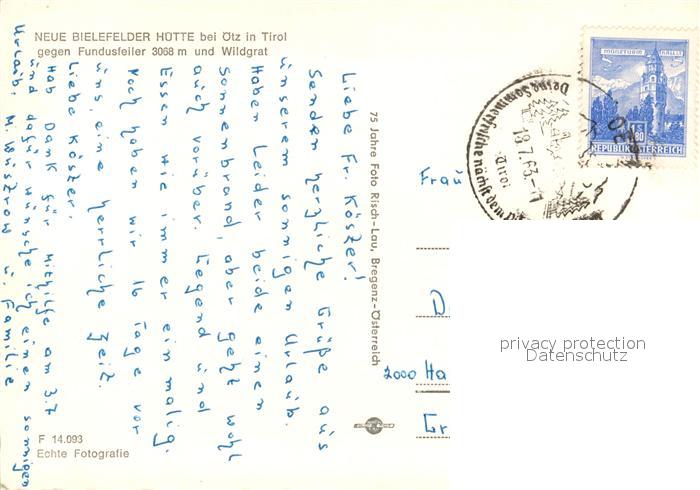 NEUE BIELEFELDER HÜTTE bei Ötz in Tirol
gegen Fundusfeiler 3068 m und Wildgrat
Liebe Fr. Köszer!
Senden herzliche Grüße aus
unserem sonnigen Urlaub.
Haben leider beide einen
Sonnenbrand, aber jetzt wohl
auch vorüber. Gegend und
Essen wie immer einmalig.
Noch haben wir 16 Tage vor
uns, eine herrliche Zeit.
Liebe Köszer.
Hab Dank für Mithilfe am 3.7
und dafür wünsche ich einen sonnigen
Urlaub. M. u. Familie
75 Jahre Foto Risch-Lau, Bregenz-Österreich
F 14.093
Echte Fotografie
MÜNZTURM
REPUBLIK ÖSTERREICH
Deine Sommerfrische nächstes
18.7.63
Tirol
Frau
D
2000 Ha
Gr
privacy protection
Datenschutz